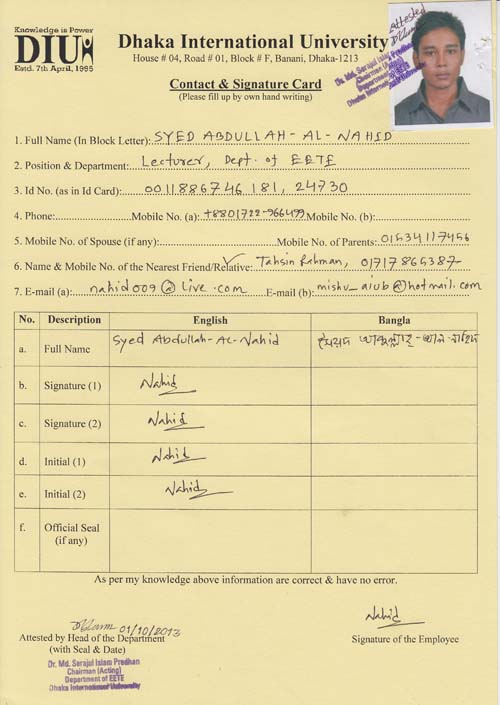 Knowledge is Power
DIU
Estd. 7th April, 1995
Dhaka International University
House # 04, Road # 01, Block # F, Banani, Dhaka-1213
Contact & Signature Card
(Please fill up by own hand writing)
Attested
Dr. Md. Serajul Islam Prodhan
Chairman (Acting)
Department of EETE
Dhaka International University
1. Full Name (In Block Letter): SYED ABDULLAH-AL-NAHID
2. Position & Department: Lecturer, Dept. of EETE
3. Id No. (as in Id Card): 0011886746181, 24730
4. Phone: Mobile No. (a): +8801722-966499 Mobile No. (b):
5. Mobile No. of Spouse (if any): Mobile No. of Parents: 01534117456
6. Name & Mobile No. of the Nearest Friend/Relative: Tahsin Rahman, 01717865387
7. E-mail (a): nahid009@live.com E-mail (b): mishu_aiub@hotmail.com
No. Description English Bangla
a. Full Name Syed Abdullah-AL-Nahid সৈয়দ আব্দুল্লাহ-আল-নাহিদ
b. Signature (1) Nahid
c. Signature (2) Nahid
d. Initial (1) Nahid
e. Initial (2) Nahid
f. Official Seal (if any)
As per my knowledge above information are correct & have no error.
01/10/2013 Nahid
Attested by Head of the Department Signature of the Employee
(with Seal & Date)
Dr. Md. Serajul Islam Prodhan
Chairman (Acting)
Department of EETE
Dhaka International University